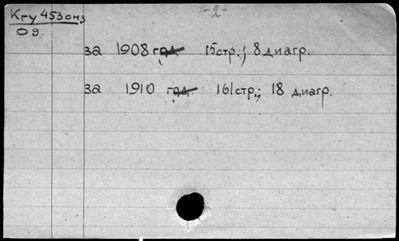 Кгу 453онз -2-
09.
за 1908 год 15стр.; 8 диагр.
за 1910 год 161стр.; 18 диагр.